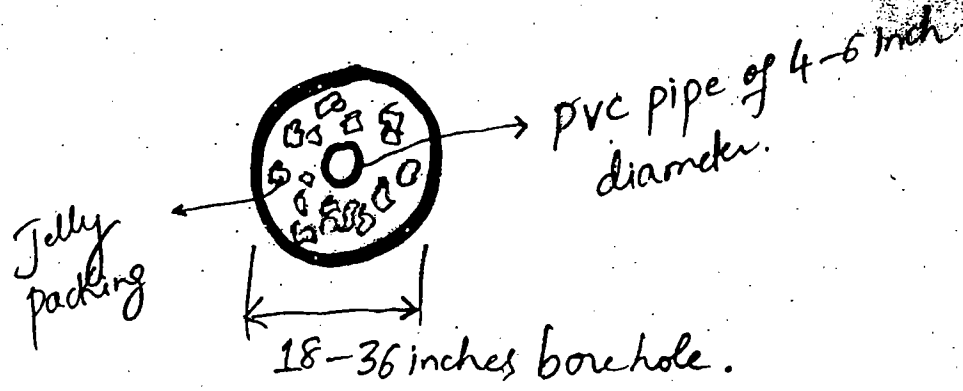 PVC pipe of 4-6 inch
diameter.
Jelly
packing
18-36 inches borehole.